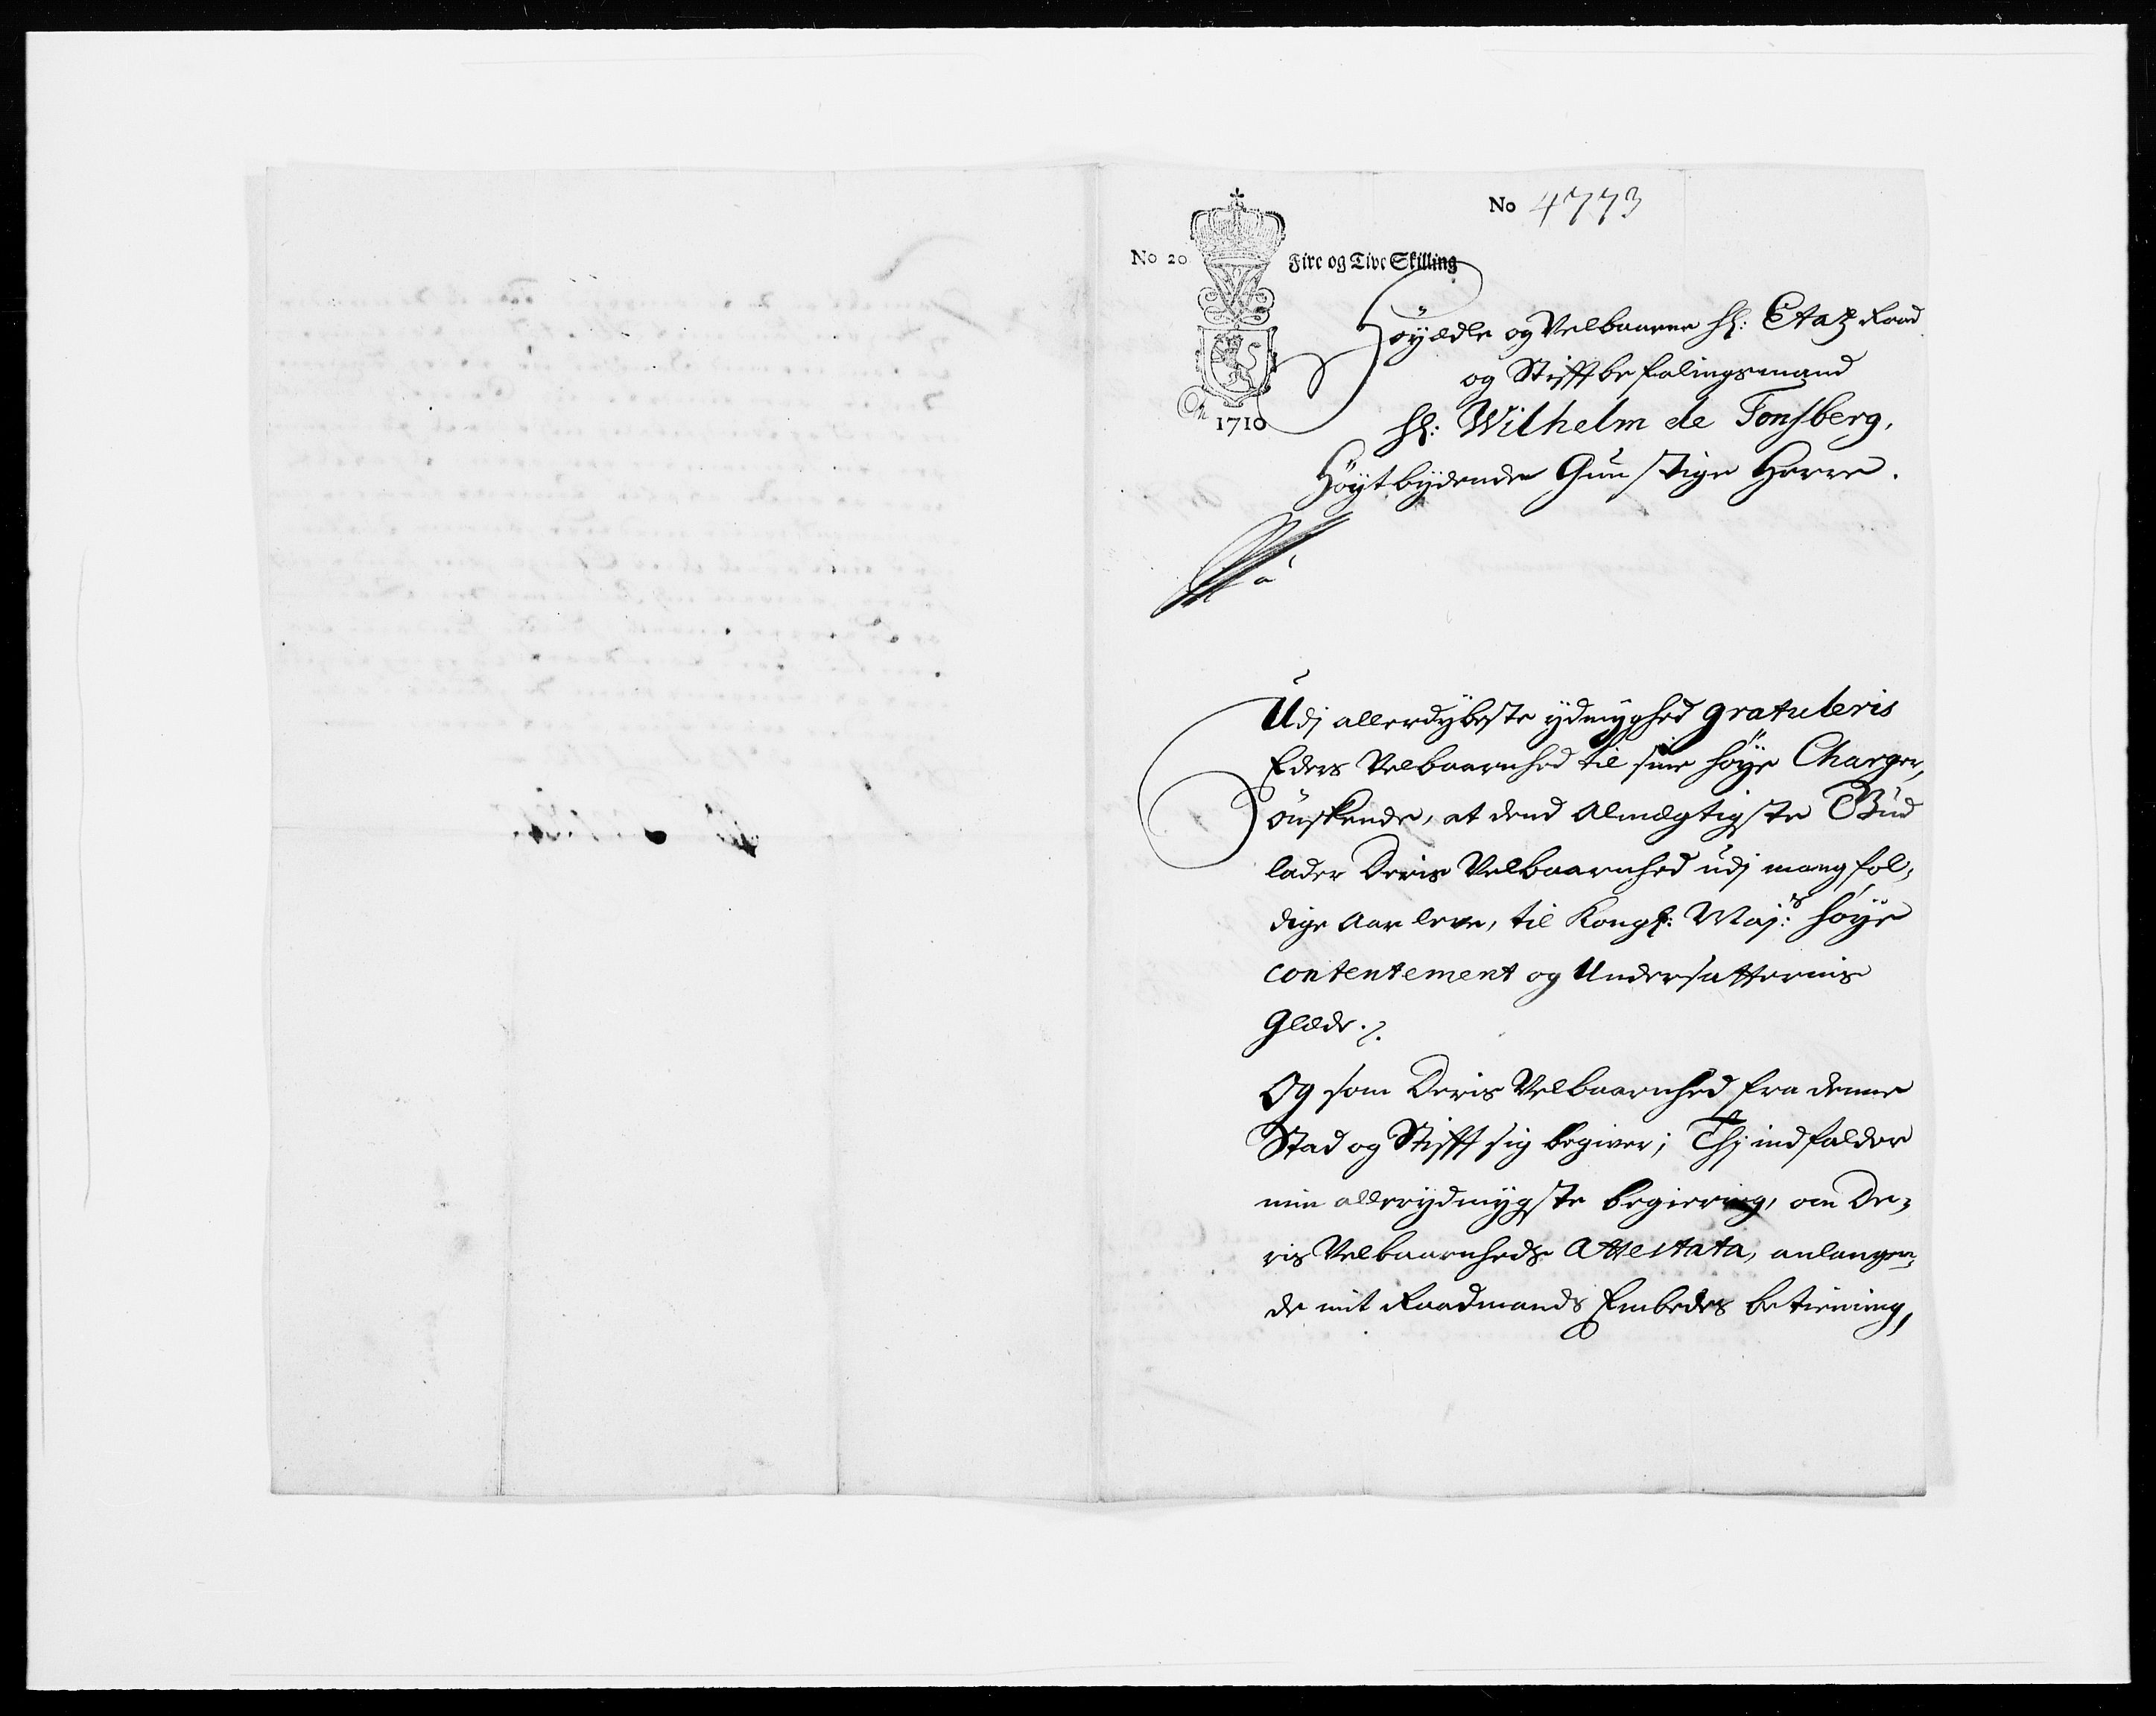 No 4773
No 20 Fire og Tive Skilling
1710
Høyædle og Velbaarne Hr: Etatz Raad
og Stifftbefalingsmand
Hr: Wilhelm de Tonsberg,
Høytbydende Gunstige Herre.
Udj allerdybeste ydmyghed gratuleris
Eders Velbaarnhed til sine høye Charger,
ønskende, at dend Almægtigste Gud
lader Deris Velbaarnhed udj mangfol-
dige Aar leve, til Kongl: Maj:s høye
contentement og Undersatternis
Glæde./.
Og som Deris Velbaarnhed fra denne
Stad og Stifft sig begiver; Thj indfalder
min allerydmygste begiering, om De-
ris Velbaarnheds Attestata, anlangen-
de mit Raadmands Embedes betiening,